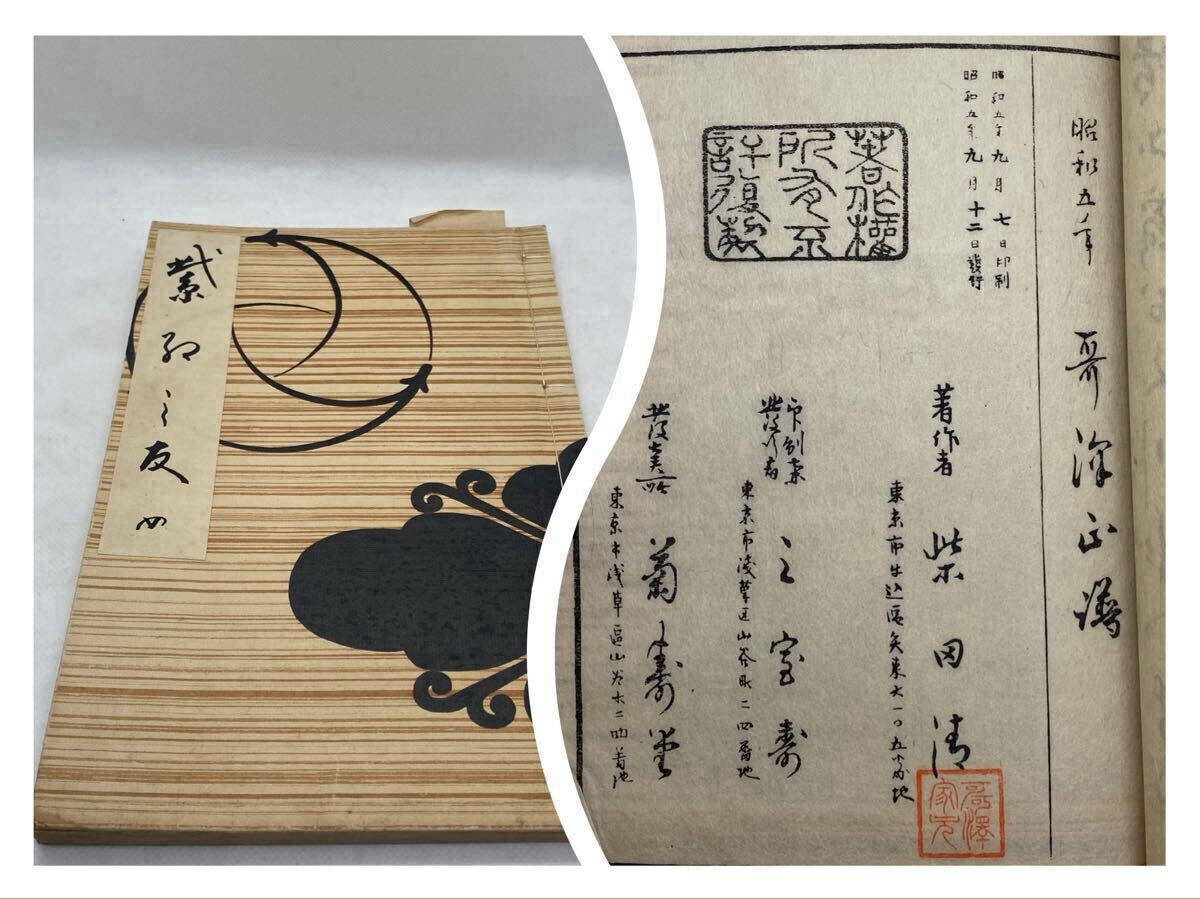 之友 四
昭和五年 哥澤正譜
昭和五年九月七日印刷
昭和五年九月十二日發行
著作權
所有不
許複製
著作者 柴田清
東京市牛込區矢来丁一〇五番地
哥澤
家元
印刷兼
發行者 三室壽
東京市浅草区山谷町二四番地
發賣所 菊壽堂
東京市浅草區山谷丁二四番地